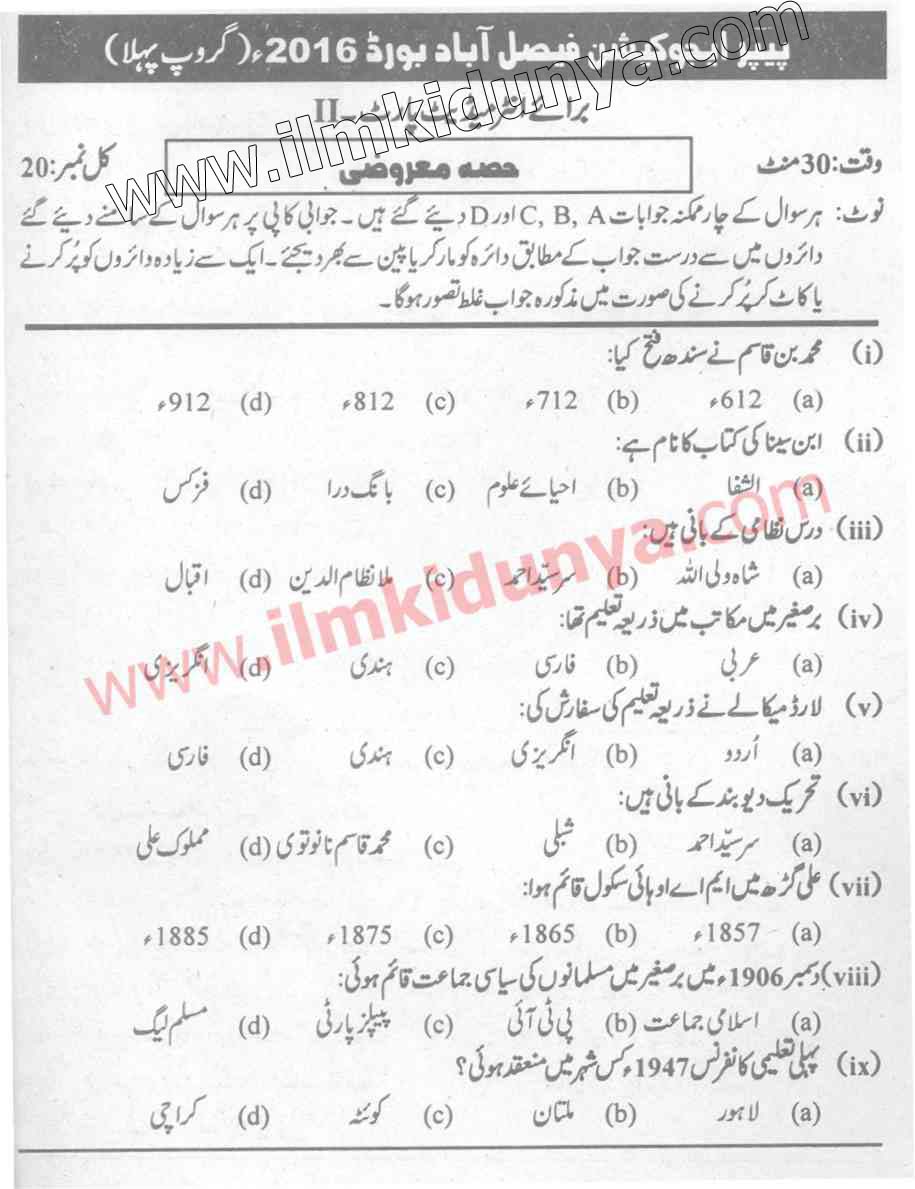 پیپر ایجوکیشن فیصل آباد بورڈ 2016ء (گروپ پہلا)
برائے انٹرمیڈیٹ پارٹ۔ II
وقت: 30 منٹ حصہ معروضی کل نمبر: 20
www.ilmkidunya.com
نوٹ: ہر سوال کے چار ممکنہ جوابات C, B, A اور D دیئے گئے ہیں۔ جوابی کاپی پر ہر سوال کے سامنے دیئے گئے
دائروں میں سے درست جواب کے مطابق دائرہ کو مارکر یا پین سے بھر دیجئے۔ ایک سے زیادہ دائروں کو پُر کرنے
یا کاٹ کر پُر کرنے کی صورت میں مذکورہ جواب غلط تصور ہوگا۔
(i) محمد بن قاسم نے سندھ فتح کیا:
(a) 612ء (b) 712ء (c) 812ء (d) 912ء
(ii) ابن سینا کی کتاب کا نام ہے:
(a) الشفا (b) احیائے علوم (c) بانگ درا (d) فزکس
(iii) درس نظامی کے بانی ہیں:
(a) شاہ ولی اللہ (b) سرسیّد احمد (c) ملا نظام الدین (d) اقبال
www.ilmkidunya.com
(iv) برصغیر میں مکاتب میں ذریعہ تعلیم تھا:
(a) عربی (b) فارسی (c) ہندی (d) انگریزی
(v) لارڈ میکالے نے ذریعہ تعلیم کی سفارش کی:
(a) اُردو (b) انگریزی (c) ہندی (d) فارسی
(vi) تحریک دیوبند کے بانی ہیں:
(a) سرسیّد احمد (b) شبلی (c) محمد قاسم نانوتوی (d) مملوک علی
(vii) علی گڑھ میں ایم اے او ہائی سکول قائم ہوا:
(a) 1857ء (b) 1865ء (c) 1875ء (d) 1885ء
(viii) دسمبر 1906ء میں برصغیر میں مسلمانوں کی سیاسی جماعت قائم ہوئی:
(a) اسلامی جماعت (b) پی ٹی آئی (c) پیپلز پارٹی (d) مسلم لیگ
(ix) پہلی تعلیمی کانفرنس 1947ء کس شہر میں منعقد ہوئی؟
(a) لاہور (b) ملتان (c) کوئٹہ (d) کراچی